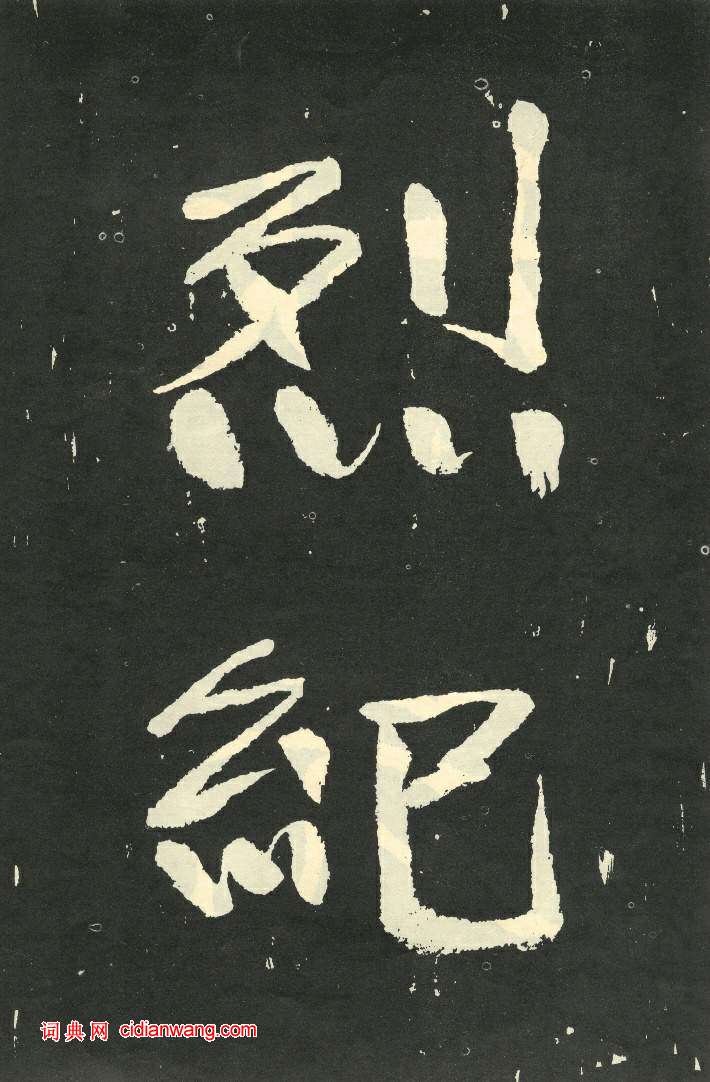 烈
紀
词典网 cidianwang.com